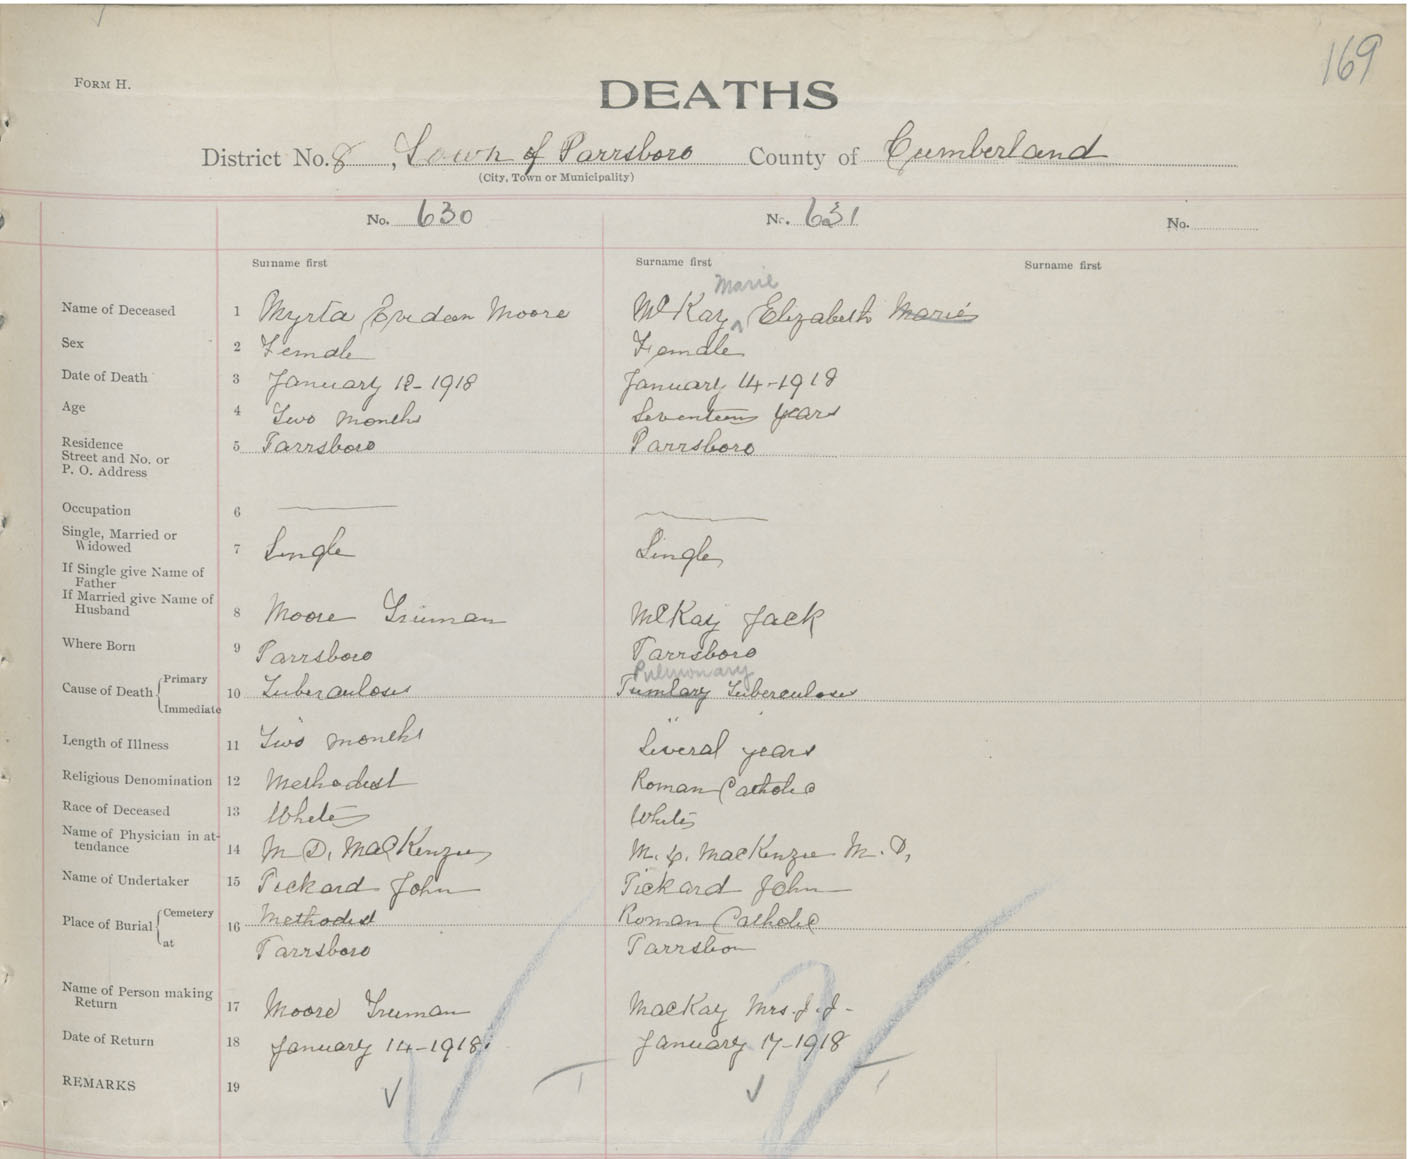 169
FORM H.
DEATHS
District No. 8, Town of Parrsboro County of Cumberland
(City, Town or Municipality)
No. 630 No. 631 No.
Surname first Surname first Surname first
Marie
Name of Deceased 1 Myrta Evedeen Moore McKay ^ Elizabeth Marie
Sex 2 Female Female
Date of Death 3 January 12-1918 January 14-1918
Age 4 Two months Seventeen years
Residence
Street and No. or
P. O. Address 5 Parrsboro Parrsboro
Occupation 6
Single, Married or
Widowed 7 Single Single
If Single give Name of
Father
If Married give Name of
Husband 8 Moore Truman McKay Jack
Where Born 9 Parrsboro Parrsboro
Pulmonary
Cause of Death Primary 10 Tuberculosis Tuberculosis
Immediate
Length of Illness 11 Two months Several years
Religious Denomination 12 Methodist Roman Catholic
Race of Deceased 13 White White
Name of Physician in at-
tendance 14 M D. MacKenzie M. D. MacKenzie M. D.
Name of Undertaker 15 Pickard John Pickard John
Place of Burial Cemetery 16 Methodist Roman Catholic
at Parrsboro Parrsboro
Name of Person making
Return 17 Moore Truman MacKay Mrs. J. J.
Date of Return 18 January 14-1918. January 17-1918
REMARKS 19